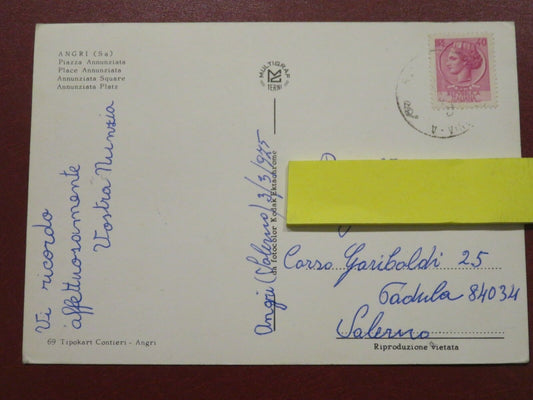 ANGRI (Sa)
Piazza Annunziata
Place Annunziata
Annunziata Square
Annunziata Platz
MULTIGRAF
TERNI
40
Vi ricordo
affettuosamente
Vostra Nunzia
Angri (Salerno) 3/3/975
da fotocolor Kodak Ektachrome
Corso Garibaldi 25
Padula 84034
Salerno
69 Tipokart Contieri - Angri
Riproduzione vietata